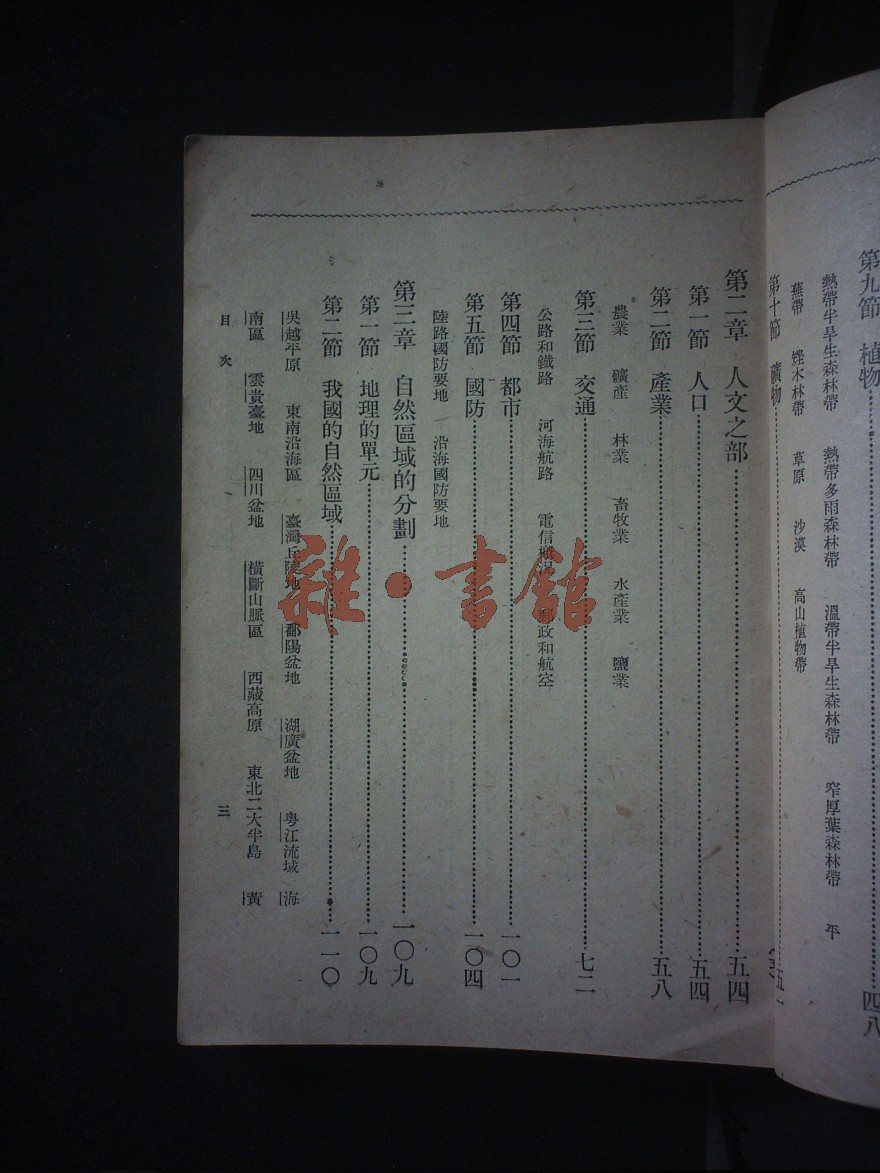 第九節　植物……四八
熱帶半旱生森林帶　熱帶多雨森林帶　溫帶半旱生森林帶　窄厚葉森林帶　平
蕪帶　矮木林帶　草原　沙漠　高山植物帶
第十節　礦物
第二章　人文之部……五四
第一節　人口……五四
第二節　產業……五八
農業　礦產　林業　畜牧業　水產業　鹽業
第三節　交通……七二
公路和鐵路　河海航路　電信　郵政和航空
第四節　都市……一〇一
第五節　國防……一〇四
陸路國防要地　沿海國防要地
第三章　自然區域的分劃……一〇九
第一節　地理的單元……一〇九
第二節　我國的自然區域……一一〇
吳越平原　東南沿海區　臺灣丘陵地　鄱陽盆地　湖廣盆地　粵江流域　海
南區　雲貴臺地　四川盆地　橫斷山脈區　西藏高原　東北二大半島　黃
目次　三
雜·書館